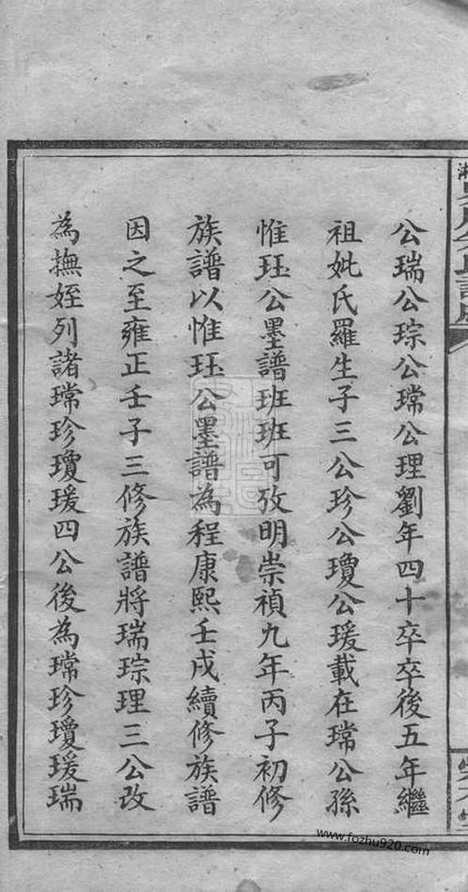 公瑞公琮公瑺公理劉年四十卒卒後五年繼
祖妣氏羅生子三公珍公瓊公瑗載在瑺公孫
惟珏公墨譜班班可攷明崇禎九年丙子初修
族譜以惟珏公墨譜為程康熙壬戌續修族譜
因之至雍正壬子三修族譜將瑞琮理三公改
為撫姪列諸瑺珍瓊瑗四公後為瑺珍瓊瑗瑞
www.fozhu920.com